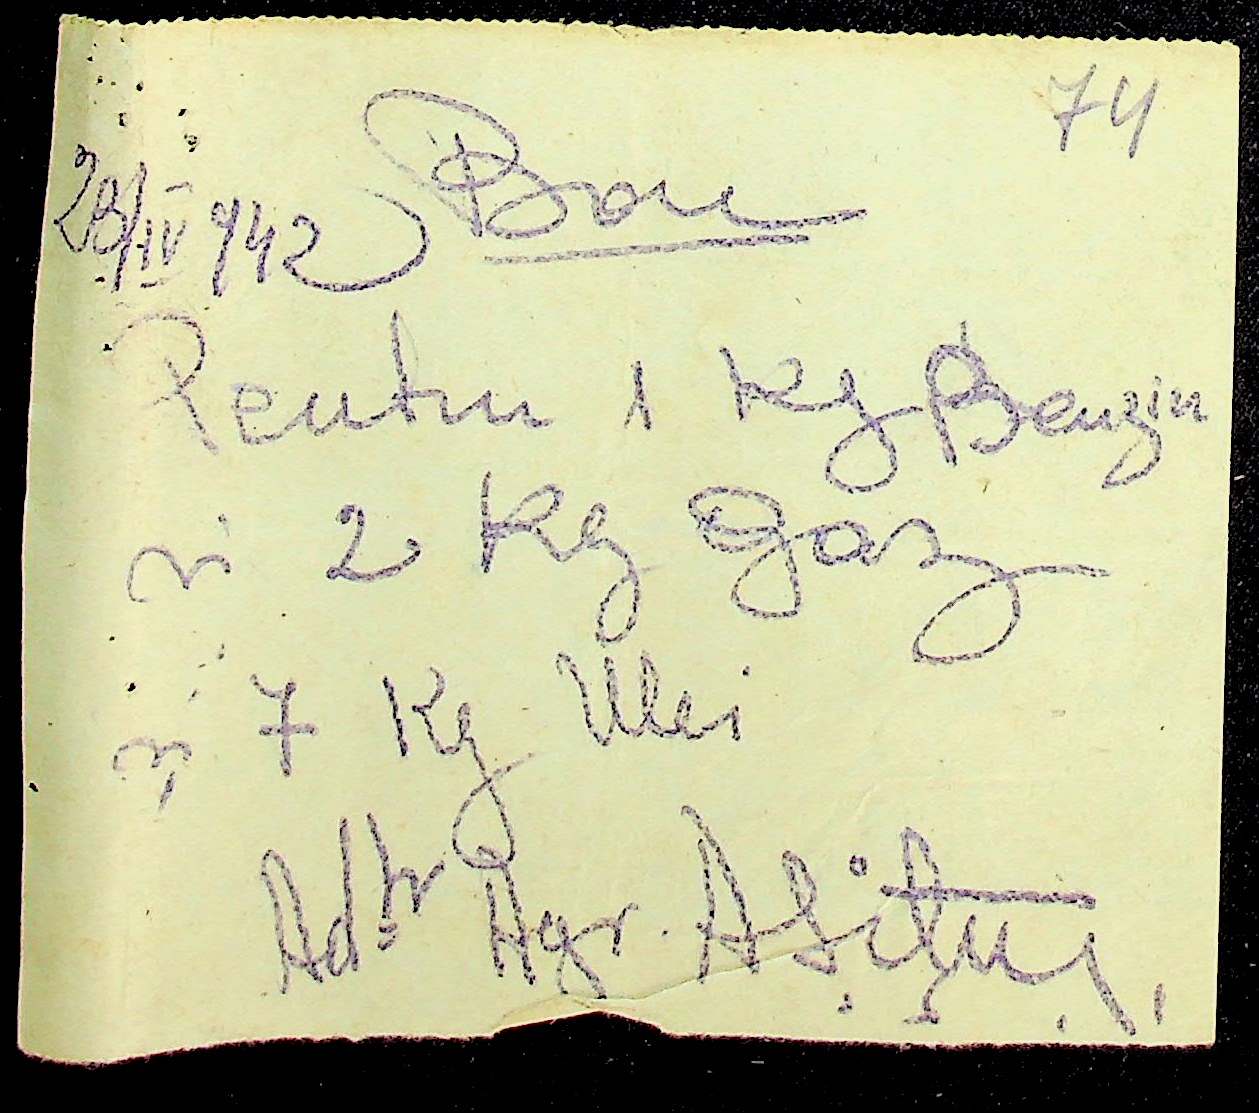 74
Bon
28/IV 942
Pentru 1 Kg Benzin
și 2 Kg Gaz
și 7 Kg Ulei
Adtr Agr.